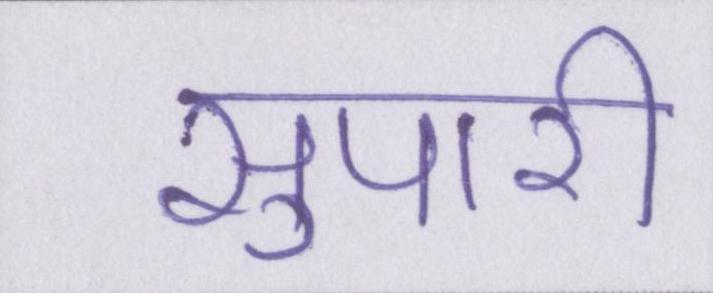 सुपारी